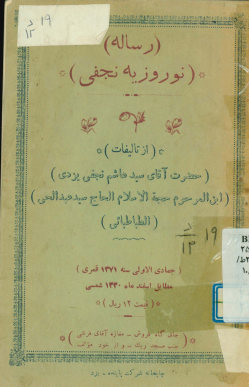 د ۱۹
۱۳
(رساله)
(نوروزیه نجفی)
(از تالیفات)
(حضرت آقای سید هاشم نجفی یزدی)
(ابن المرحوم حجة الاسلام الحاج سید عبدالحی)
(الطباطبائی)
د ۱۹
۱۳
(جمادی الاولی سنه ۱۳۷۱ قمری)
مطابق اسفند ماه ۱۳۳۰ شمسی
(قیمت ۱۲ ریال)
جای گاه فروش - مغازه آقای
جنب مسجد ریك - و از خود مؤلف
چاپخانه شرکت پاینده - یزد